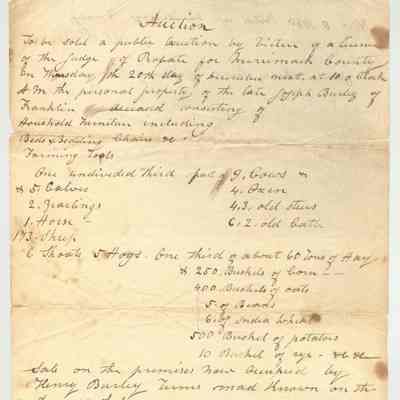 Auction
To be sold a public Auction by Virtue of a License
of the Judge of Probate for Merrimack County
On Thursday the 20th day of December next. at 10 o Clock
A.M. the personal property of the late Joseph Burley of
Franklin deceased consisting of
Household Furniture including
Beds & Bedding Chairs &c
Farming Tools
One undivided third part of 9. Cows &
& 5. Calves 4. Oxen
2. yearlings 4.3. old steers
1. Horse - 6.2. old Cattle
173. Sheep
6 Shoats 5 Hogs. One third of about 60 Tons of Hay
& 250. Bushels of Corn --
400 Bushels of oats
5 of Beans
6 of India Wheat
500 Bushel of potatoes
10 Bushel of rye - &c &c
Sale on the premises now occupied by
Henry Burley Terms mad Known on the